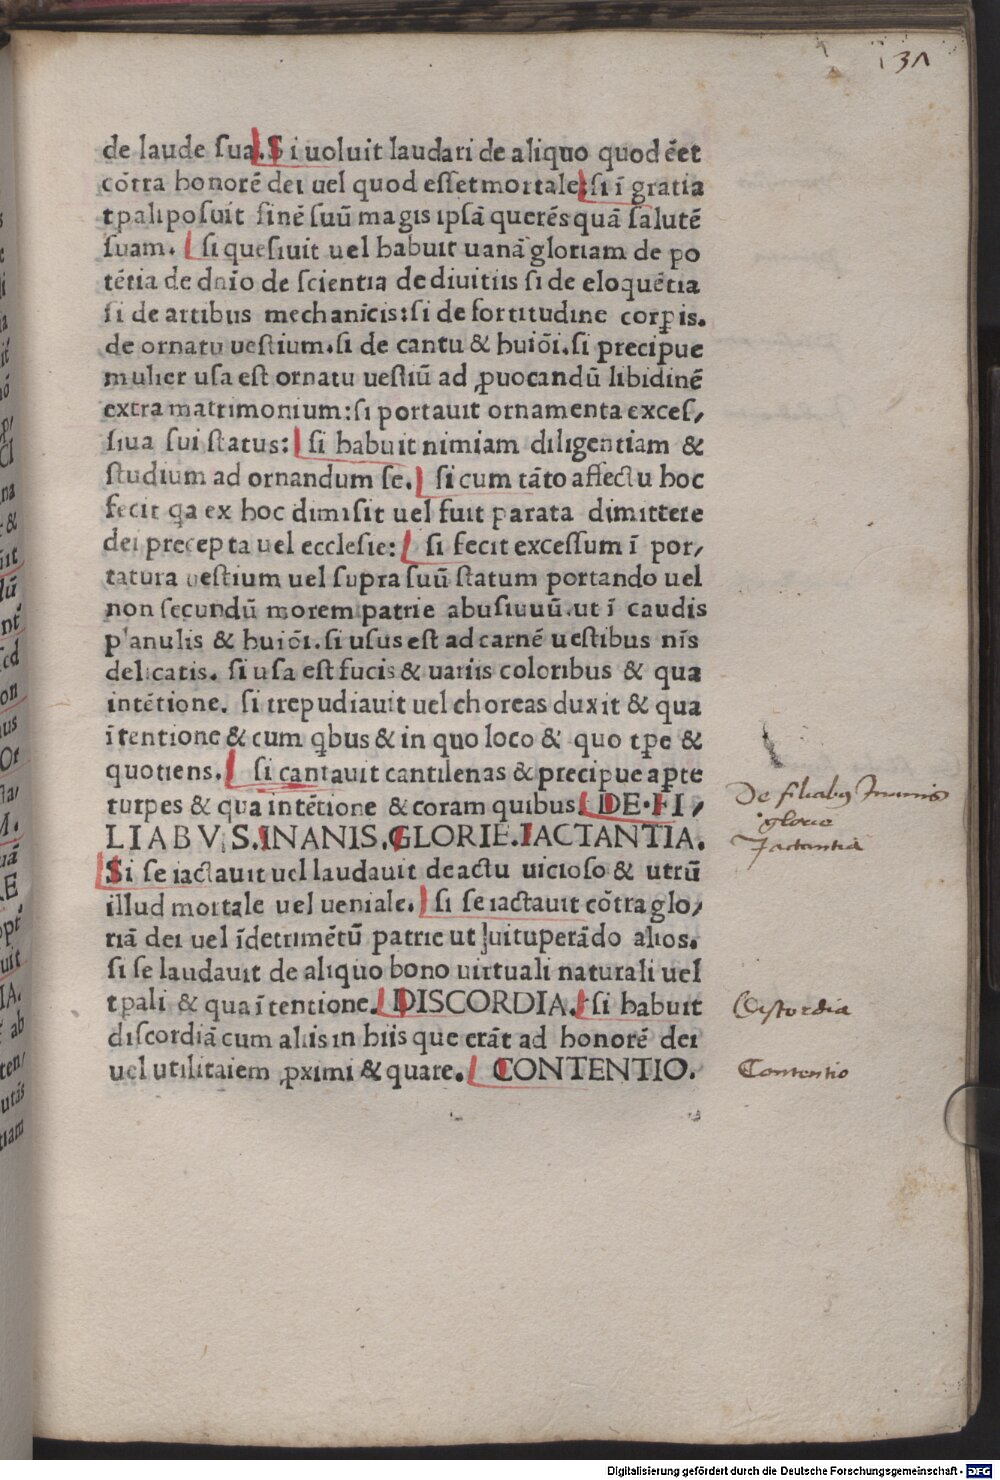 31
de laude sua. Si uoluit laudari de aliquo quod ēet
cōtra honorē dei uel quod esset mortale: si ī gratia
tpali posuit finē suū magis ipsā querēs quā salutē
suam. si quesiuit uel habuit uanā gloriam de po
tētia de dnīo de scientia de diuitiis si de eloquētia
si de artibus mechanīcis: si de fortitudine corꝑis.
de ornatu uestium. si de cantu & huiōi. si precipue
mulier usa est ornatu uestiū ad ꝓuocandū libidinē
extra matrimonium: si portauit ornamenta exces/
siua sui status: si habuit nimiam diligentiam &
studium ad ornandum se. si cum tāto affectu hoc
fecit qa ex hoc dimisit uel fuit parata dimittere
dei precepta uel ecclesie: si fecit excessum ī por/
tatura uestium uel supra suū statum portando uel
non secundū morem patrie abusiuuū. ut ī caudis
p'anulis & huiōi. si usus est ad carnē uestibus nīs
delicatis. si usa est fucis & uariis coloribus & qua
intētione. si trepudiauit uel choreas duxit & qua
ītentione & cum qbus & in quo loco & quo tꝑe &
quotiens. si cantauit cantilenas & precipue aꝑte
turpes & qua intētione & coram quibus. DE. FI/
LIABVS. INANIS. GLORIE. IACTANTIA.
Si se iactauit uel laudauit de actu uicioso & utrū
illud mortale uel ueniale. si se iactauit cōtra glo/
riā dei uel īdetrimētū patrie ut uituperādo alios.
si se laudauit de aliquo bono uirtuali naturali uel
tpali & qua ītentione. DISCORDIA. si habuit
discordiā cum aliis in hiis que erāt ad honorē dei
uel utilitaiem ꝓximi & quare. CONTENTIO.
De filiabus Inanis
glorie
Jactantia
Discordia
Contentio
Digitalisierung gefördert durch die Deutsche Forschungsgemeinschaft - DFG